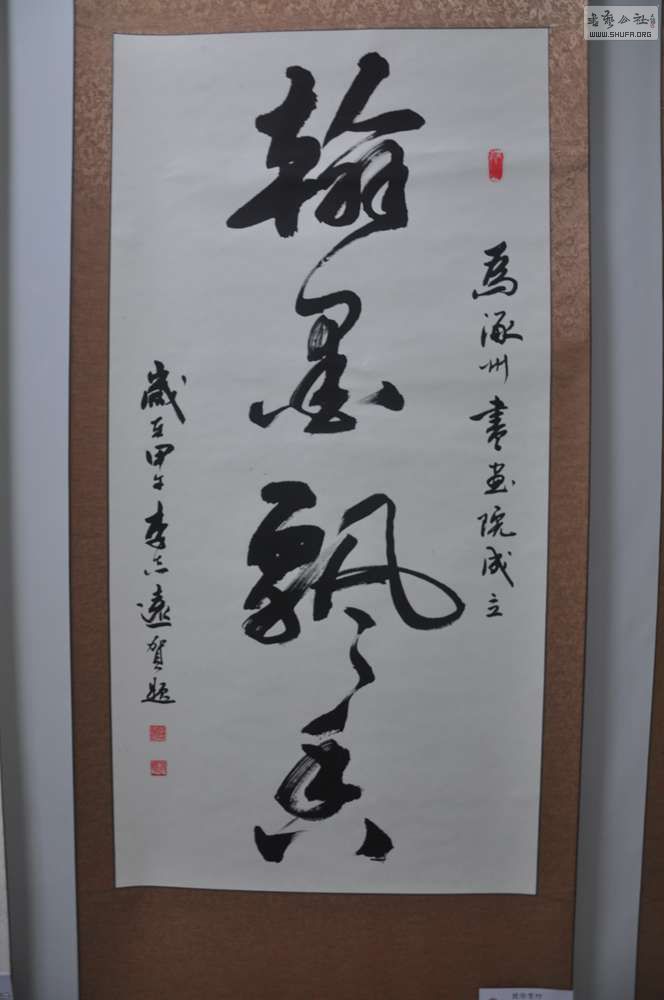 為涿州書画院成立
翰墨飘香
歲在甲午李志遠賀題
書藝公社
WWW.SHUFA.ORG